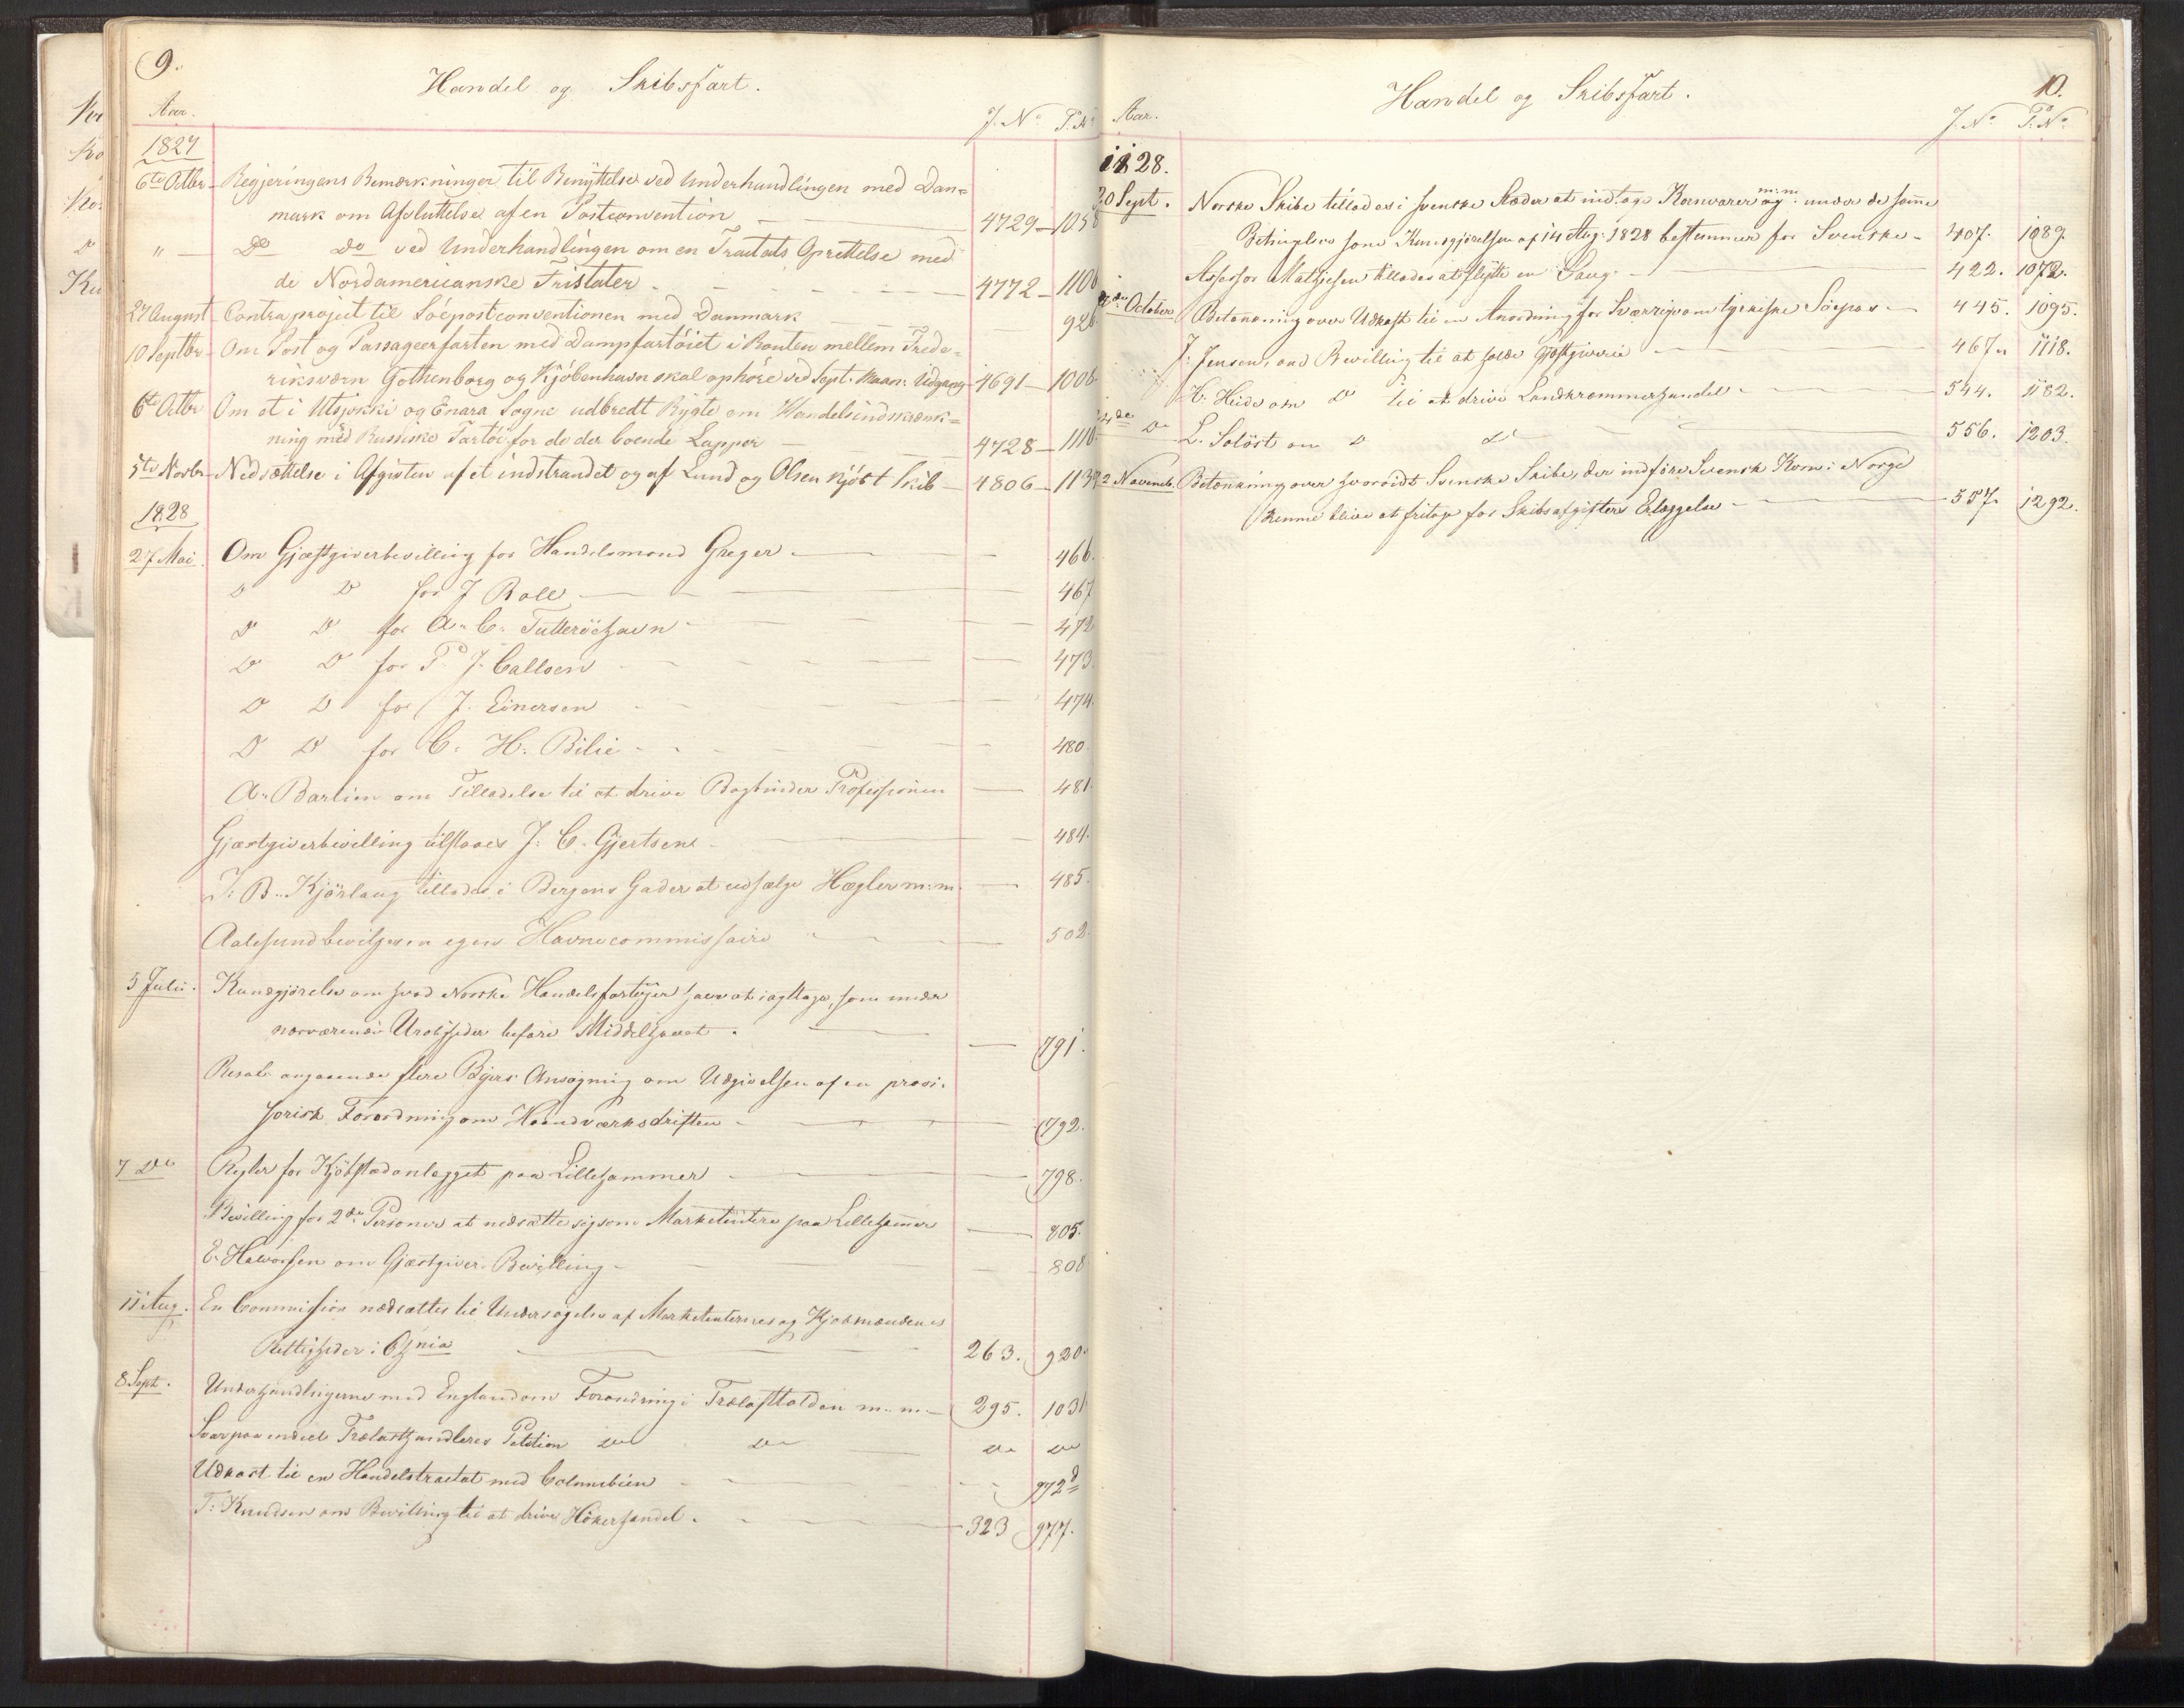 9.
Handel og Skibsfart.
Aar.
J. No P. No
1827
6te Octbr Regjeringens Bemærkninger til Benyttelse ved Underhandlingen med Dan=
mark om Afsluttelse af en Postconvention 4729 1058
" Do Do ved Underhandlingen om en Tractats Oprettelse med
de Nordamericanske Fristater 4772 1106
27 August Contraproject til Söepostconventionen med Danmark 926
10 Septbr Om Post og Passageerfarten med Dampfartöiet i Routen mellem Frede=
riksværn Gothenborg og Kjöbenhavn skal ophöre ved Sept. Maan: Udgang 4691 1006
6te Octbr Om et i Utsjokki og Enara Sogne udbredt Rygte om Handelsindskrænk=
ning med Russiske Fartöi for de der boende Lapper 4728 1110
5te Novbr Nedsættelse i Afgivten af et indstrandet og af Lund og Olsen kjöbt Skib 4806 1132
1828
27 Mai. Om Gjæstgiverbevilling for Handelsmand Greger 466.
Do Do for J Roll 467
Do Do for A. C. Tutteröehavn 472
Do Do for P. J. Callsen 473.
Do Do for J. Einersen 474.
Do Do for C. H. Bilie 480
A. Bartien om Tilladelse til at drive Bogbinder Professionen 481
Gjæstgiverbevilling tilstaaes J. C. Gjertsen 484.
J: B. Kjörlaug tillades i Bergens Gader at udsælge Hægler m: m. 485.
Aalesund bevilges en egen Havnecommissair 502.
5 Julii. Kundgjörelse om hvad Norske Handelsfartöjer have at iagttage, som under
nærværende Uroligheder befare Middelhavet. 791.
Resol. angaaende flere Byers Ansögning om Udgivelsen af en provi-
sorisk Forordning om Haandværksdriften 792.
7 Do Regler for Kjöbstadanlegget paa Lillehammer 798.
Bevilling for 2de Personer at nedsætte sig som Marketentere paa Lillehammer 805.
E. Halvorsen om Gjæstgiver-Bevilling 808
11 Aug. En Commission nedsættes til Undersögelse af Marketenternes og Kjøbmændenes
Rettigheder i 263. 920.
8 Sept. Underhandlingerne med England om Forandring i Trælasttolden m. m. 295. 1031
Svar paa endeel Trælasthandleres Petition Do Do Do Do
Udkast til en Handelstractat med Columbien 972
T: Knudsen om Bevilling til at drive Hökerhandel. 323 977.
10.
Handel og Skibsfart.
Aar.
J. No P. No
1828.
30 Sept. Norske Skibe tillades i svenske Stæder at indtage Kornvarer m: m: under de samme
Betingelser som Kundgjörelsen af 14 Aug: 1828 bestemmer for Svenske 407. 1089.
Assessor Mathiesen tillades at flytte en Saug 422. 1072.
October Betænkning over Udkast til en Anordning for Sværrig om tyrkiske Söepas 445. 1095.
J. Jensen, om Bevilling til at holde Gjæstgiverie 467 1118.
H. Heide om Do til at drive Landkrammerhandel 544. 1182.
Do L. Solöst om Do Do 556. 1203.
2 Novemb. Betænkning over hvorvidt Svenske Skibe, der indföre Svensk Korn i Norge
kunne blive at fritage for Skibsafgifters Erlæggelse 557. 1292.